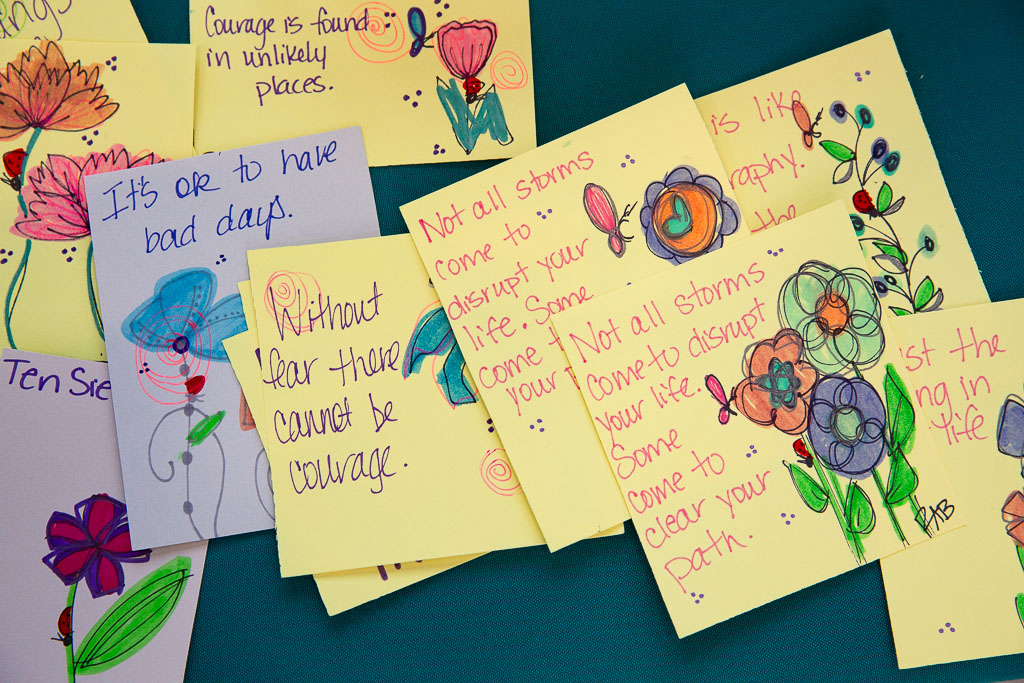 Courage is found
in unlikely
places.
It's OK to have
bad days.
Without
fear there
cannot be
courage.
Not all storms
come to
disrupt your
life. Some
come
your
is like
the
Not all storms
come to disrupt
your life.
Some
come to
clear your
path.
RAB
the
in
life
Ten